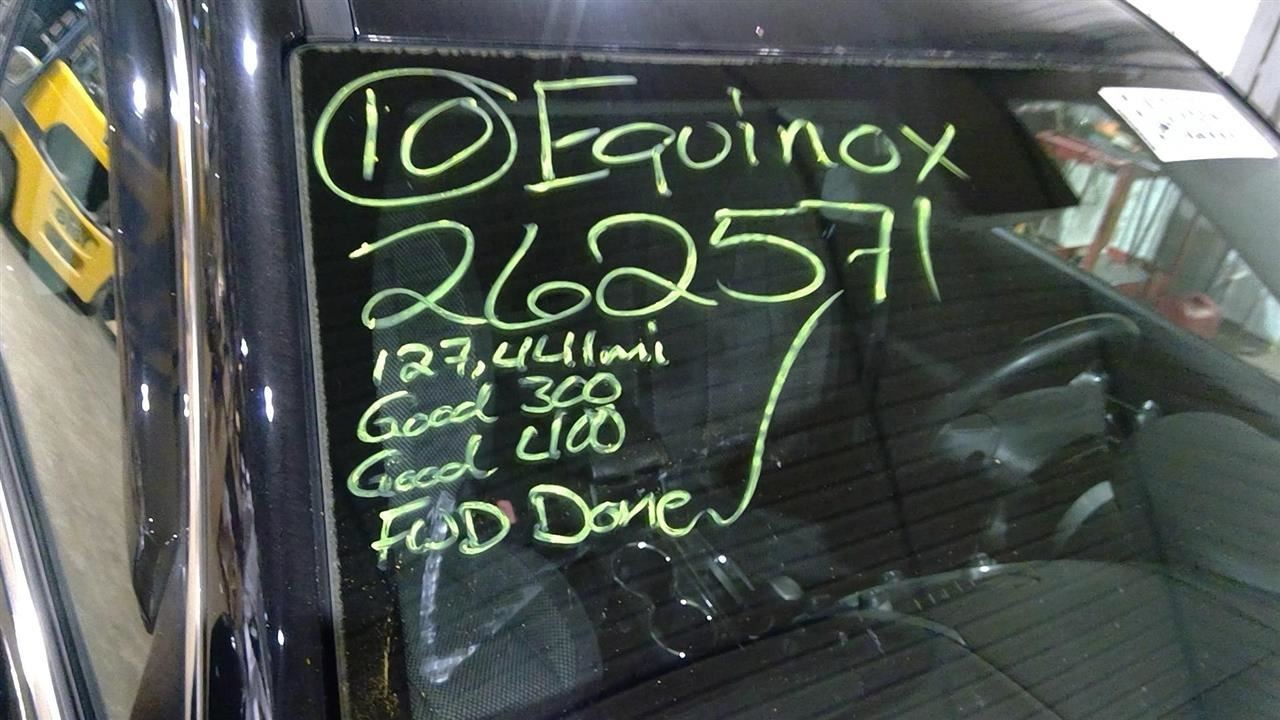 10 Equinox
262571
127,441mi
Good 300
Good 400
FWD Done